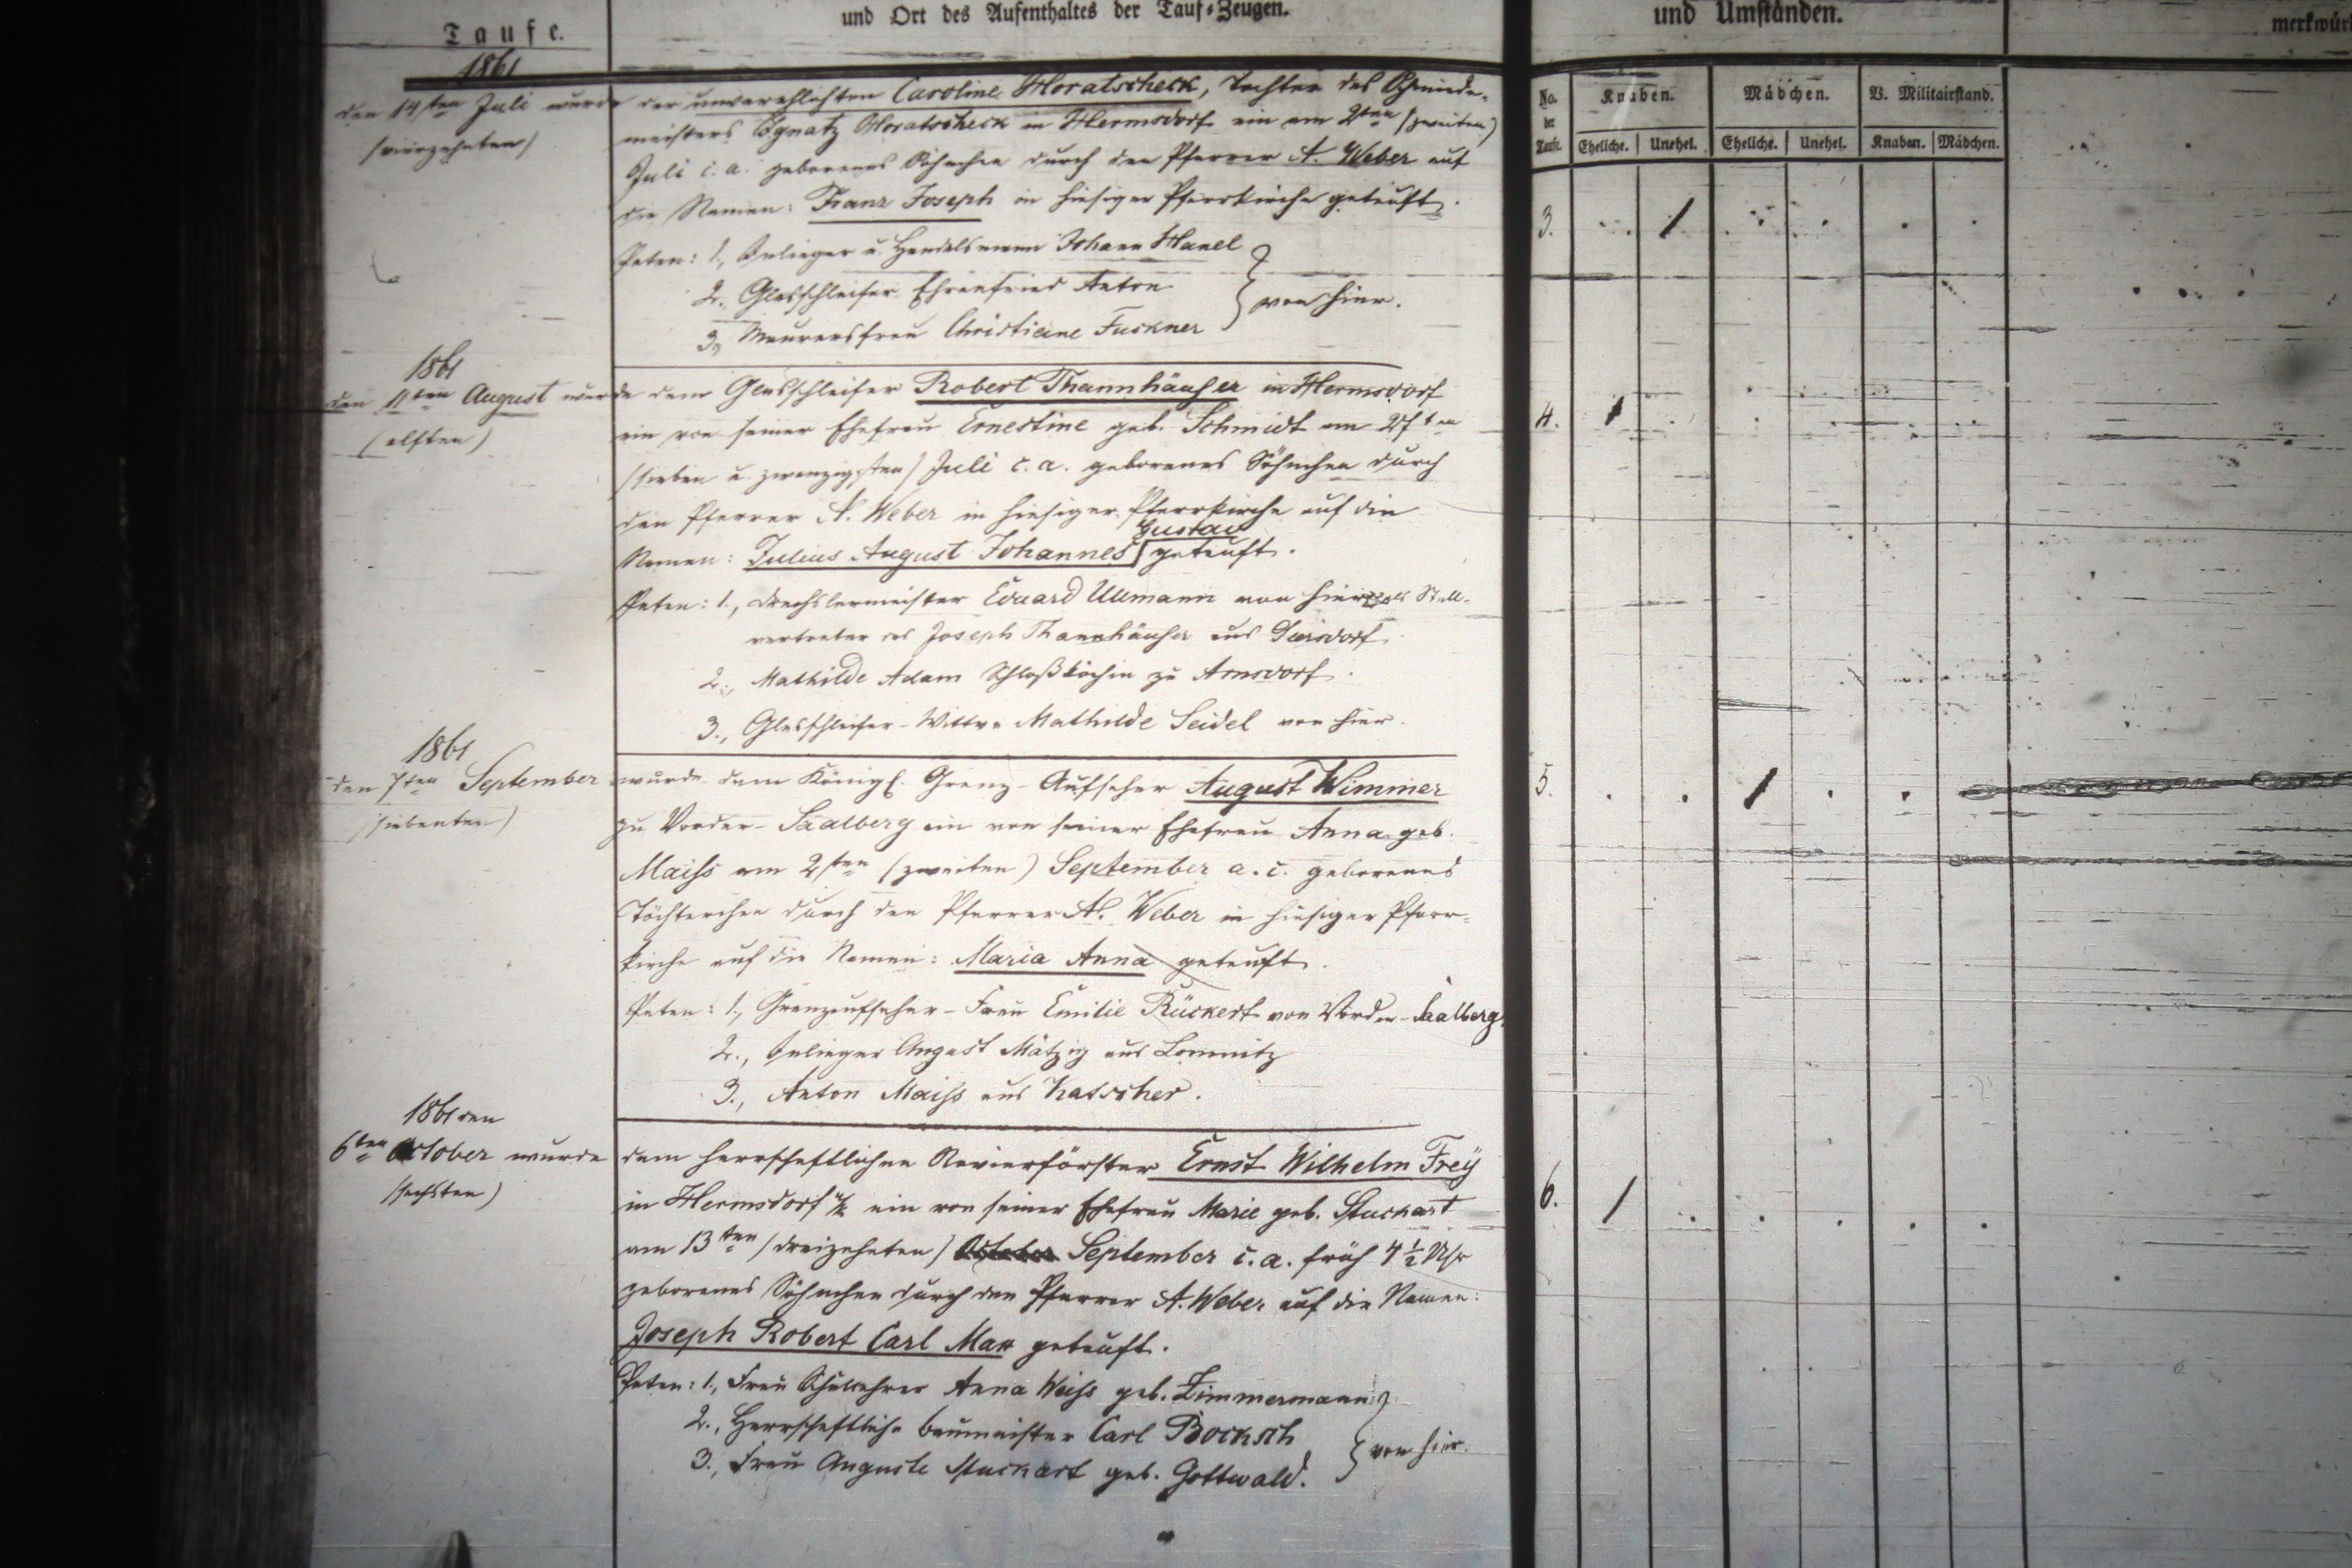 Taufe.
und Ort des Aufenthaltes der Tauf-Zeugen.
und Umständen.
merkwür
1861
den 14ten Juli wurde der unverehlichten Caroline Horatscheck, Tochter des Schmiede-
(vierzehnten)
meisters Ignatz Horatscheck in Hermsdorf ein am 2ten (zweiten)
Juli c. a. geborenes Söhnchen durch den Pfarrer A. Weber auf
die Namen: Franz Joseph in hiesiger Pfarrkirche getauft.
Paten: 1., Inlieger u. Handelsmann Johann Hanel
2., Glasschleifer Ehrenfried Anton
3., Maurersfrau Christiane Fuckner
von hier.
1861
den 11ten August wurde dem Glasschleifer Robert Thannhäuser in Hermsdorf
(elften)
ein von seiner Ehefrau Ernestine geb. Schmidt am 27ten
(sieben u. zwanzigsten) Juli c. a. geborenes Söhnchen durch
den Pfarrer A. Weber in hiesiger Pfarrkirche auf die
Gustav
Namen: Julius August Johannes getauft.
Paten: 1., Drechslermeister Eduard Ullmann von hier als Stell-
vertreter des Joseph Thannhäuser aus
2., Mathilde Adam Schloßköchin zu Arnsdorf.
3., Glasschleifer-Wittwe Mathilde Seidel von hier.
1861
den 7ten September wurde dem Königl. Grenz-Aufseher August Wimmer
(siebenten)
zu Vorder-Saalberg ein von seiner Ehefrau Anna geb.
Maiss am 2ten (zweiten) September a. c. geborenes
Töchterchen durch den Pfarrer A. Weber in hiesiger Pfarr-
kirche auf die Namen: Maria Anna getauft.
Paten: 1., Grenzaufseher-Frau Emilie Rückert von Vorder-Saalberg.
2., Inlieger August Mätzig aus Lomnitz
3., Anton Maiss aus Katscher.
1861 den
6ten October wurde dem herrschaftlichen Revierförster Ernst Wilhelm Freÿ
(sechsten)
in Hermsdorf u/K ein von seiner Ehefrau Marie geb. Stuckart
am 13ten (dreizehnten) October September c. a. früh 4 1/2 Uhr
geborenes Söhnchen durch den Pfarrer A. Weber auf die Namen:
Joseph Robert Carl Max getauft.
Paten: 1., Frau Schullehrer Anna Weiss geb. Zimmermann
2., Herrschaftliche Baumeister Carl Bocksch
3., Frau Auguste Stuckart geb. Gottwald.
von hier.
No. der Taufe.
Knaben.
Mädchen.
V. Militairstand.
Eheliche. Unehel. Eheliche. Unehel. Knaben. Mädchen.
3.
4.
5.
6.